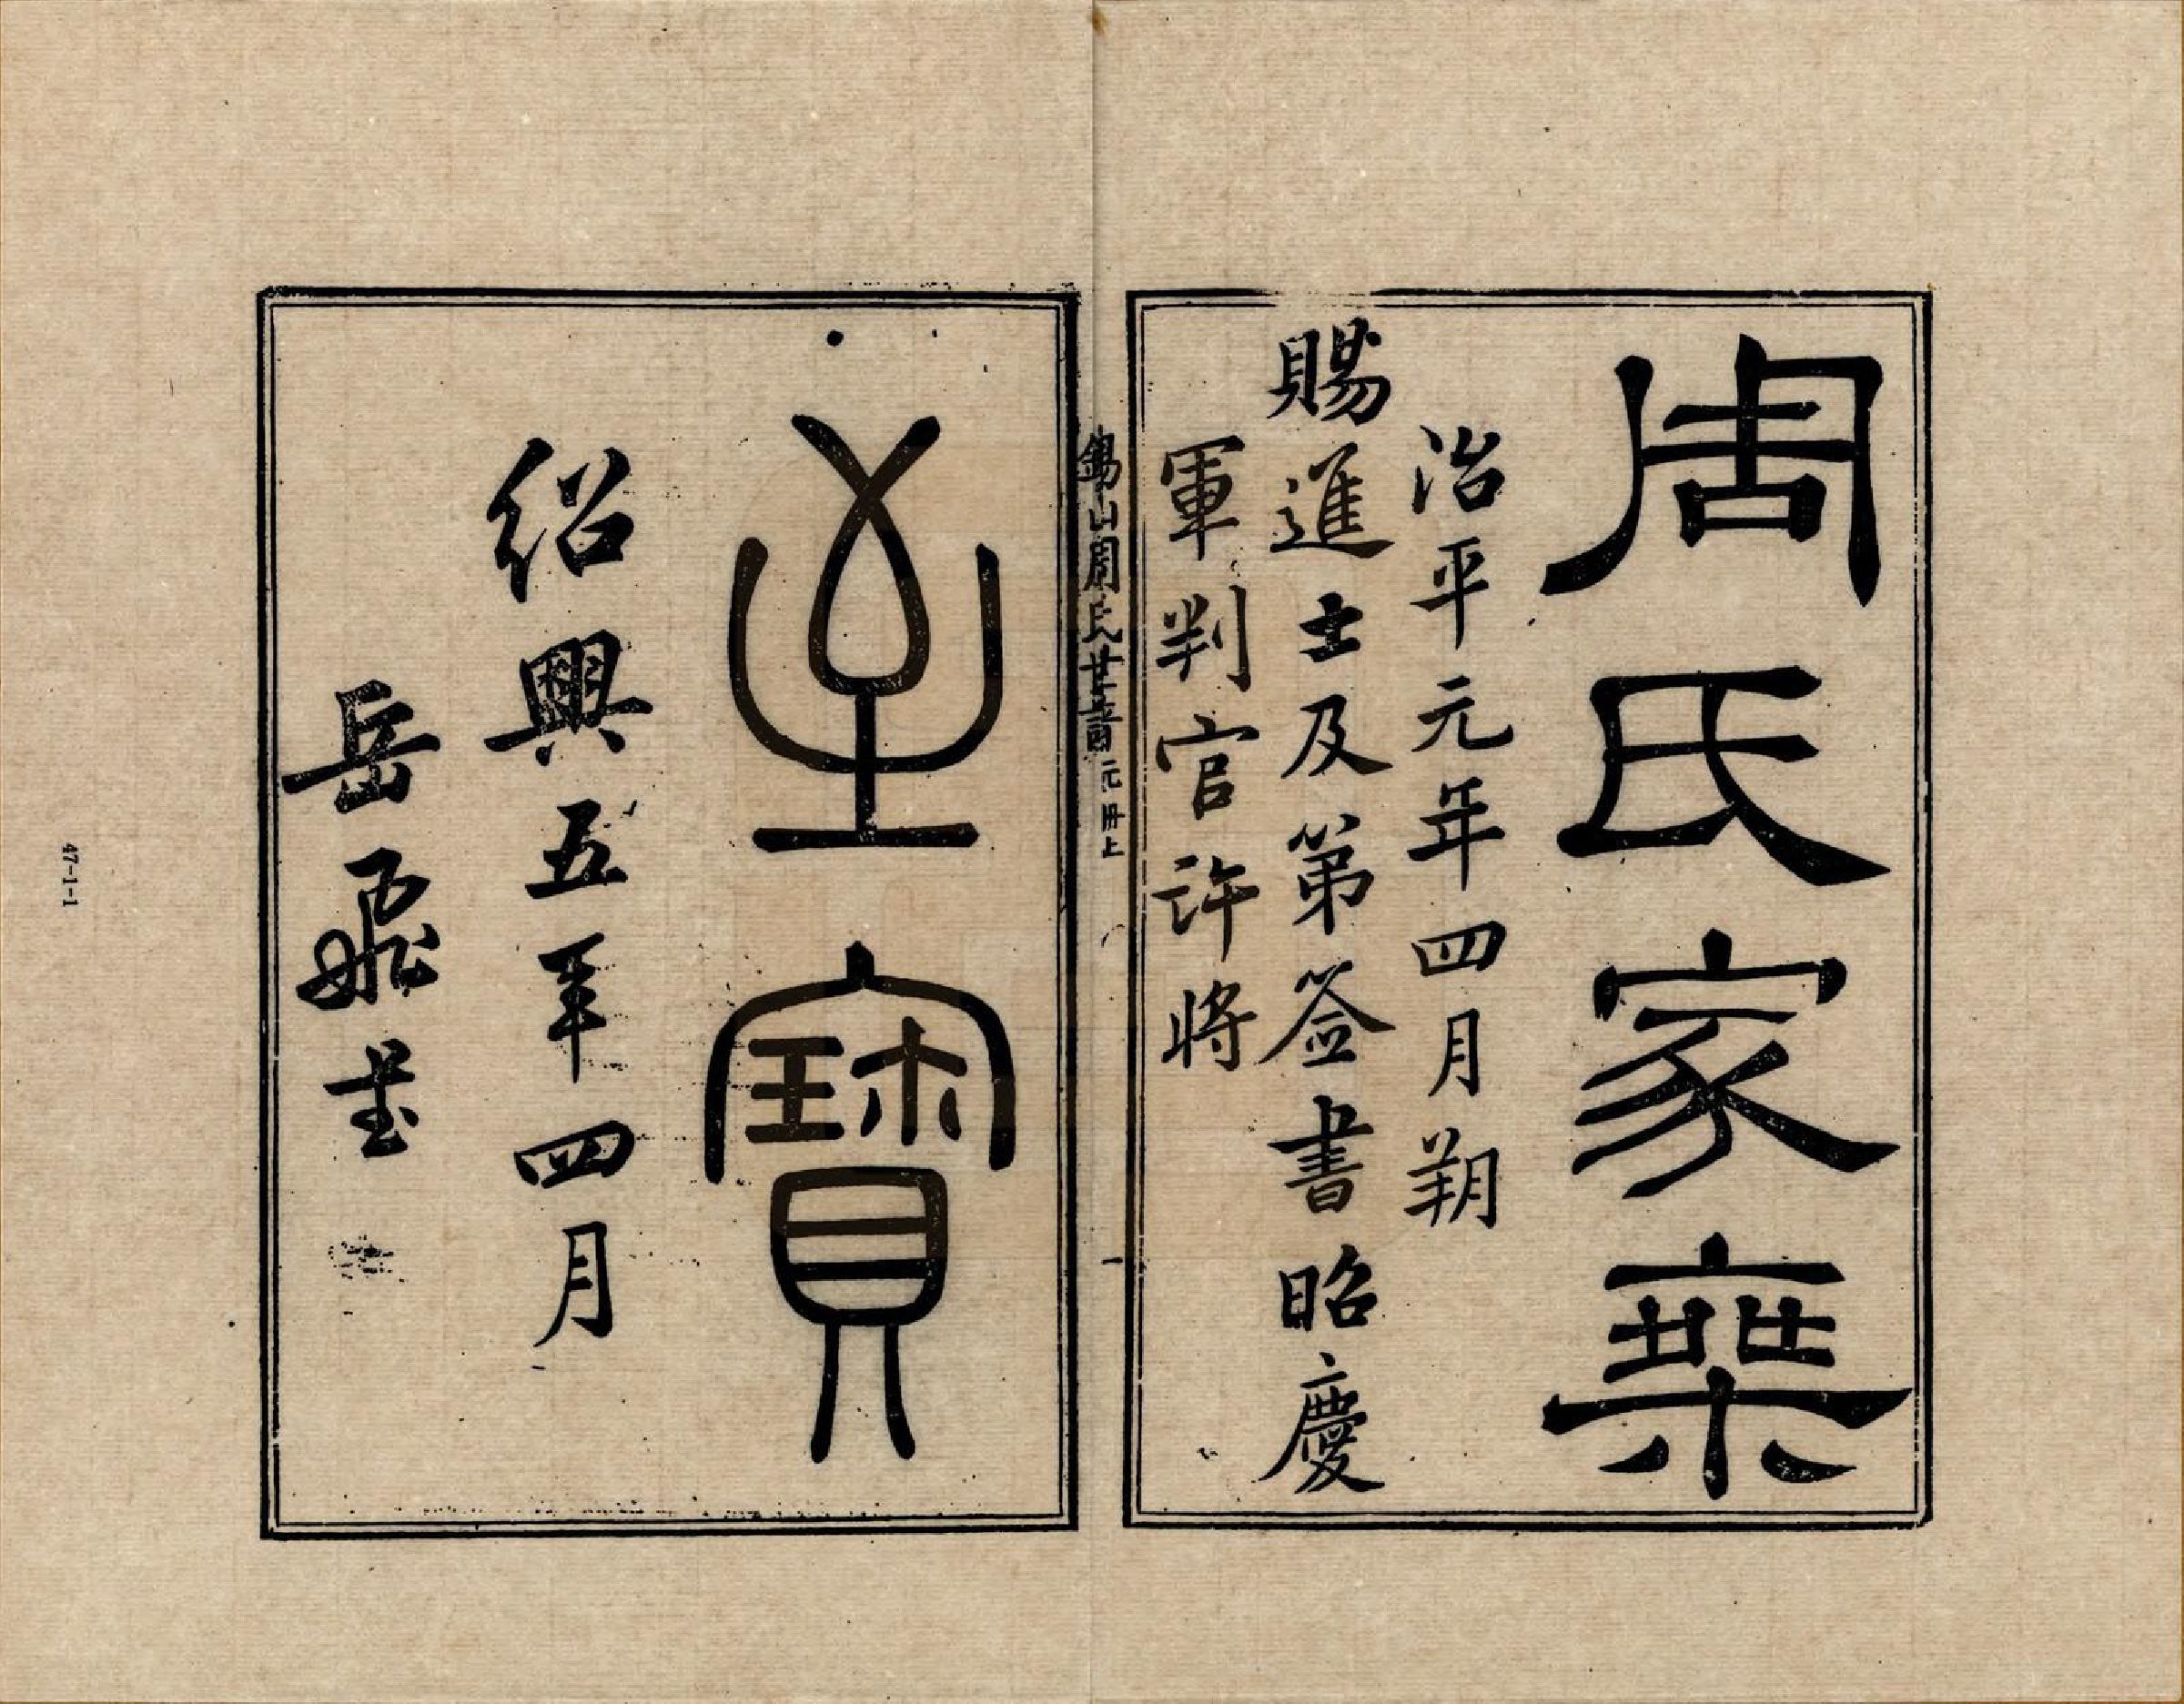 周氏家乘
治平元年四月朔
賜進士及第簽書昭慶
軍判官許將
錫山周氏世譜 元冊上 一
至寶
紹興五年四月
岳飛書
47-1-1